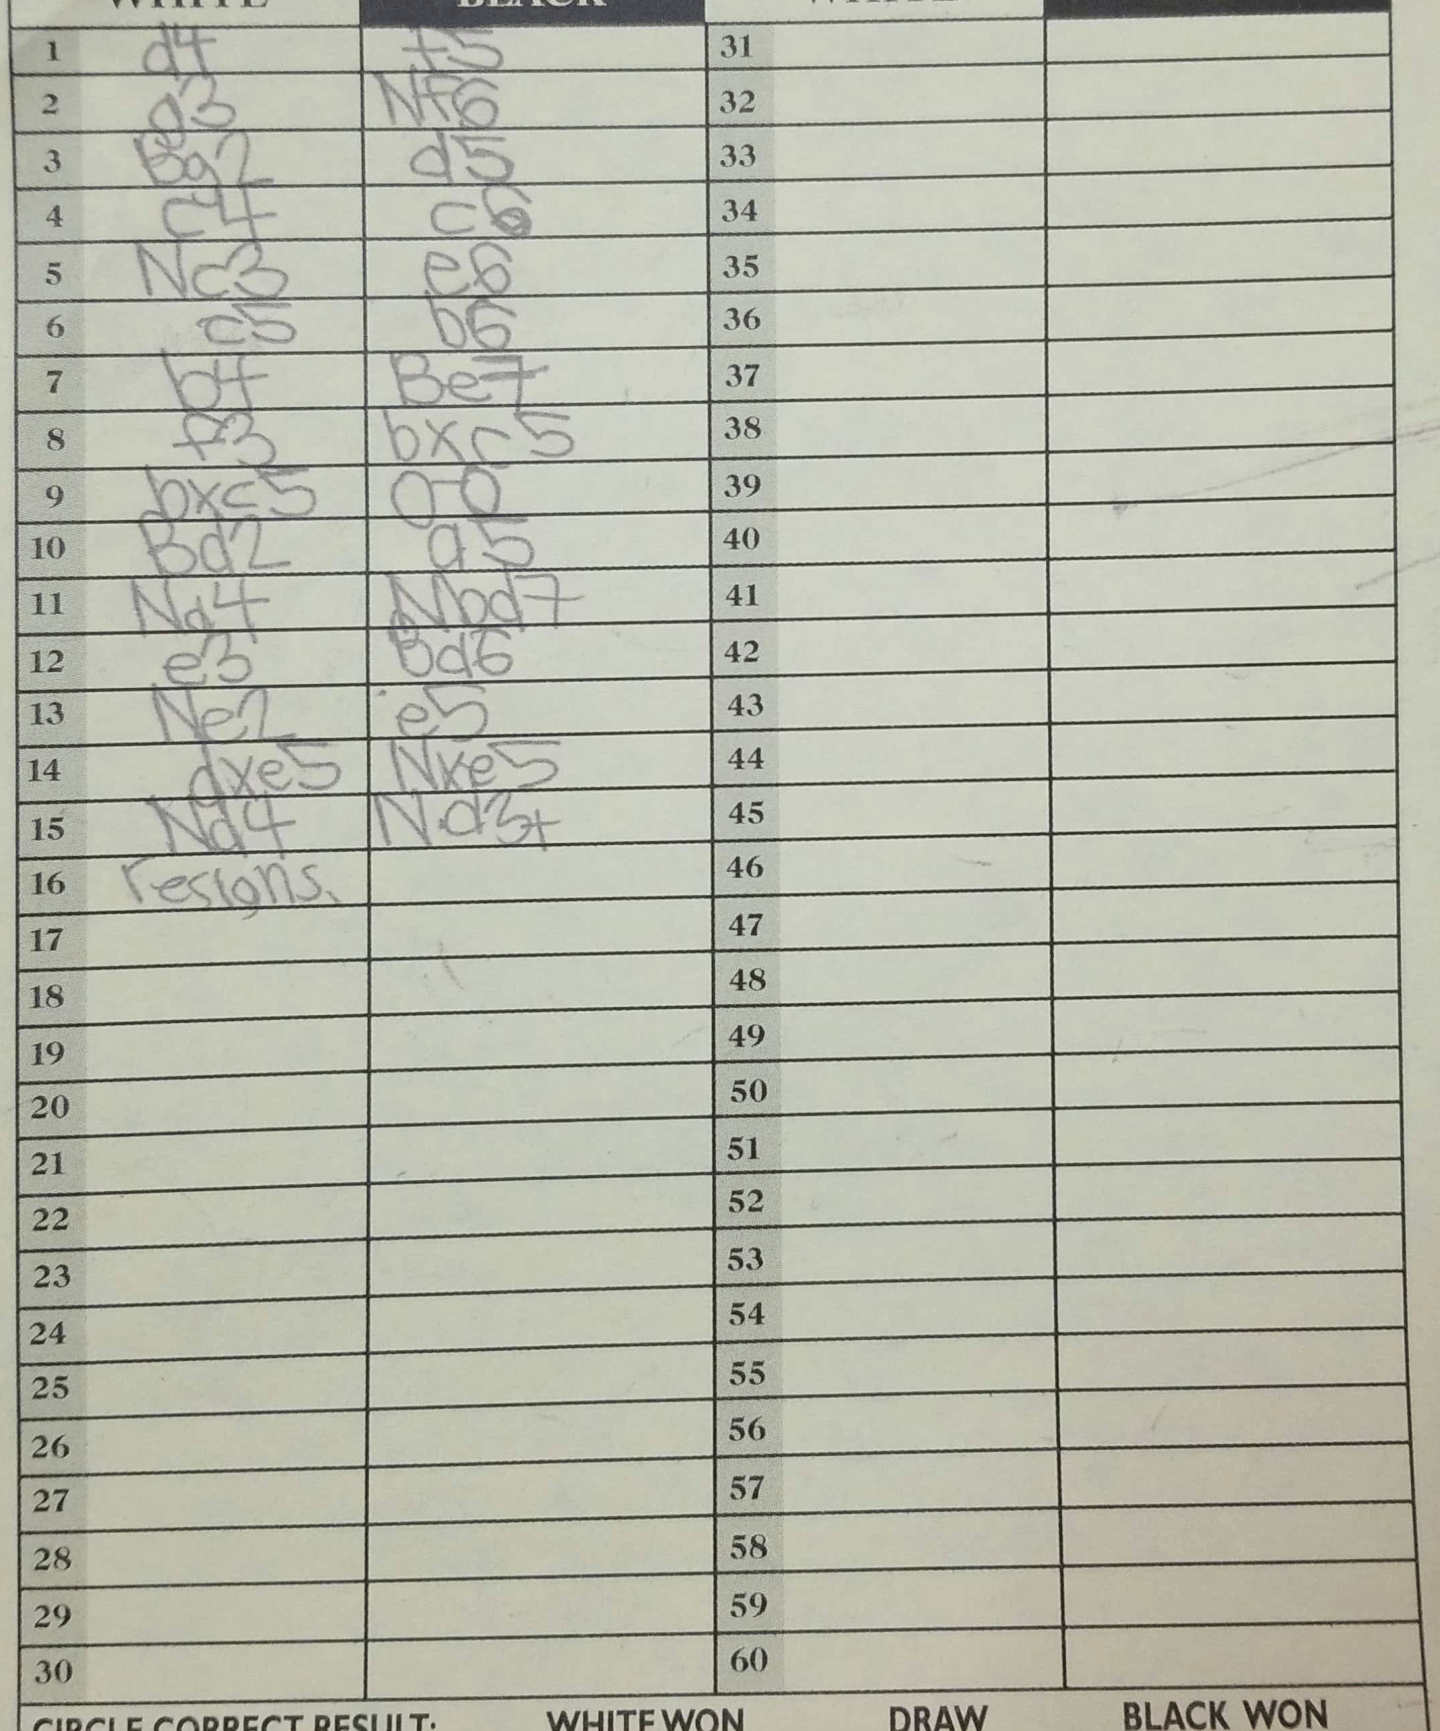 WHITE BLACK WHITE
1 d4 f5 31
2 g3 Nf6 32
3 Bg2 d5 33
4 c4 c6 34
5 Nc3 e6 35
6 c5 b6 36
7 b4 Be7 37
8 f3 bxc5 38
9 bxc5 0-0 39
10 Bd2 a5 40
11 Na4 Nbd7 41
12 e3 Bd6 42
13 Ne2 e5 43
14 dxe5 Nxe5 44
15 Nd4 Nd3+ 45
16 resigns. 46
17 47
18 48
19 49
20 50
21 51
22 52
23 53
24 54
25 55
26 56
27 57
28 58
29 59
30 60
CIRCLE CORRECT RESULT: WHITE WON DRAW BLACK WON